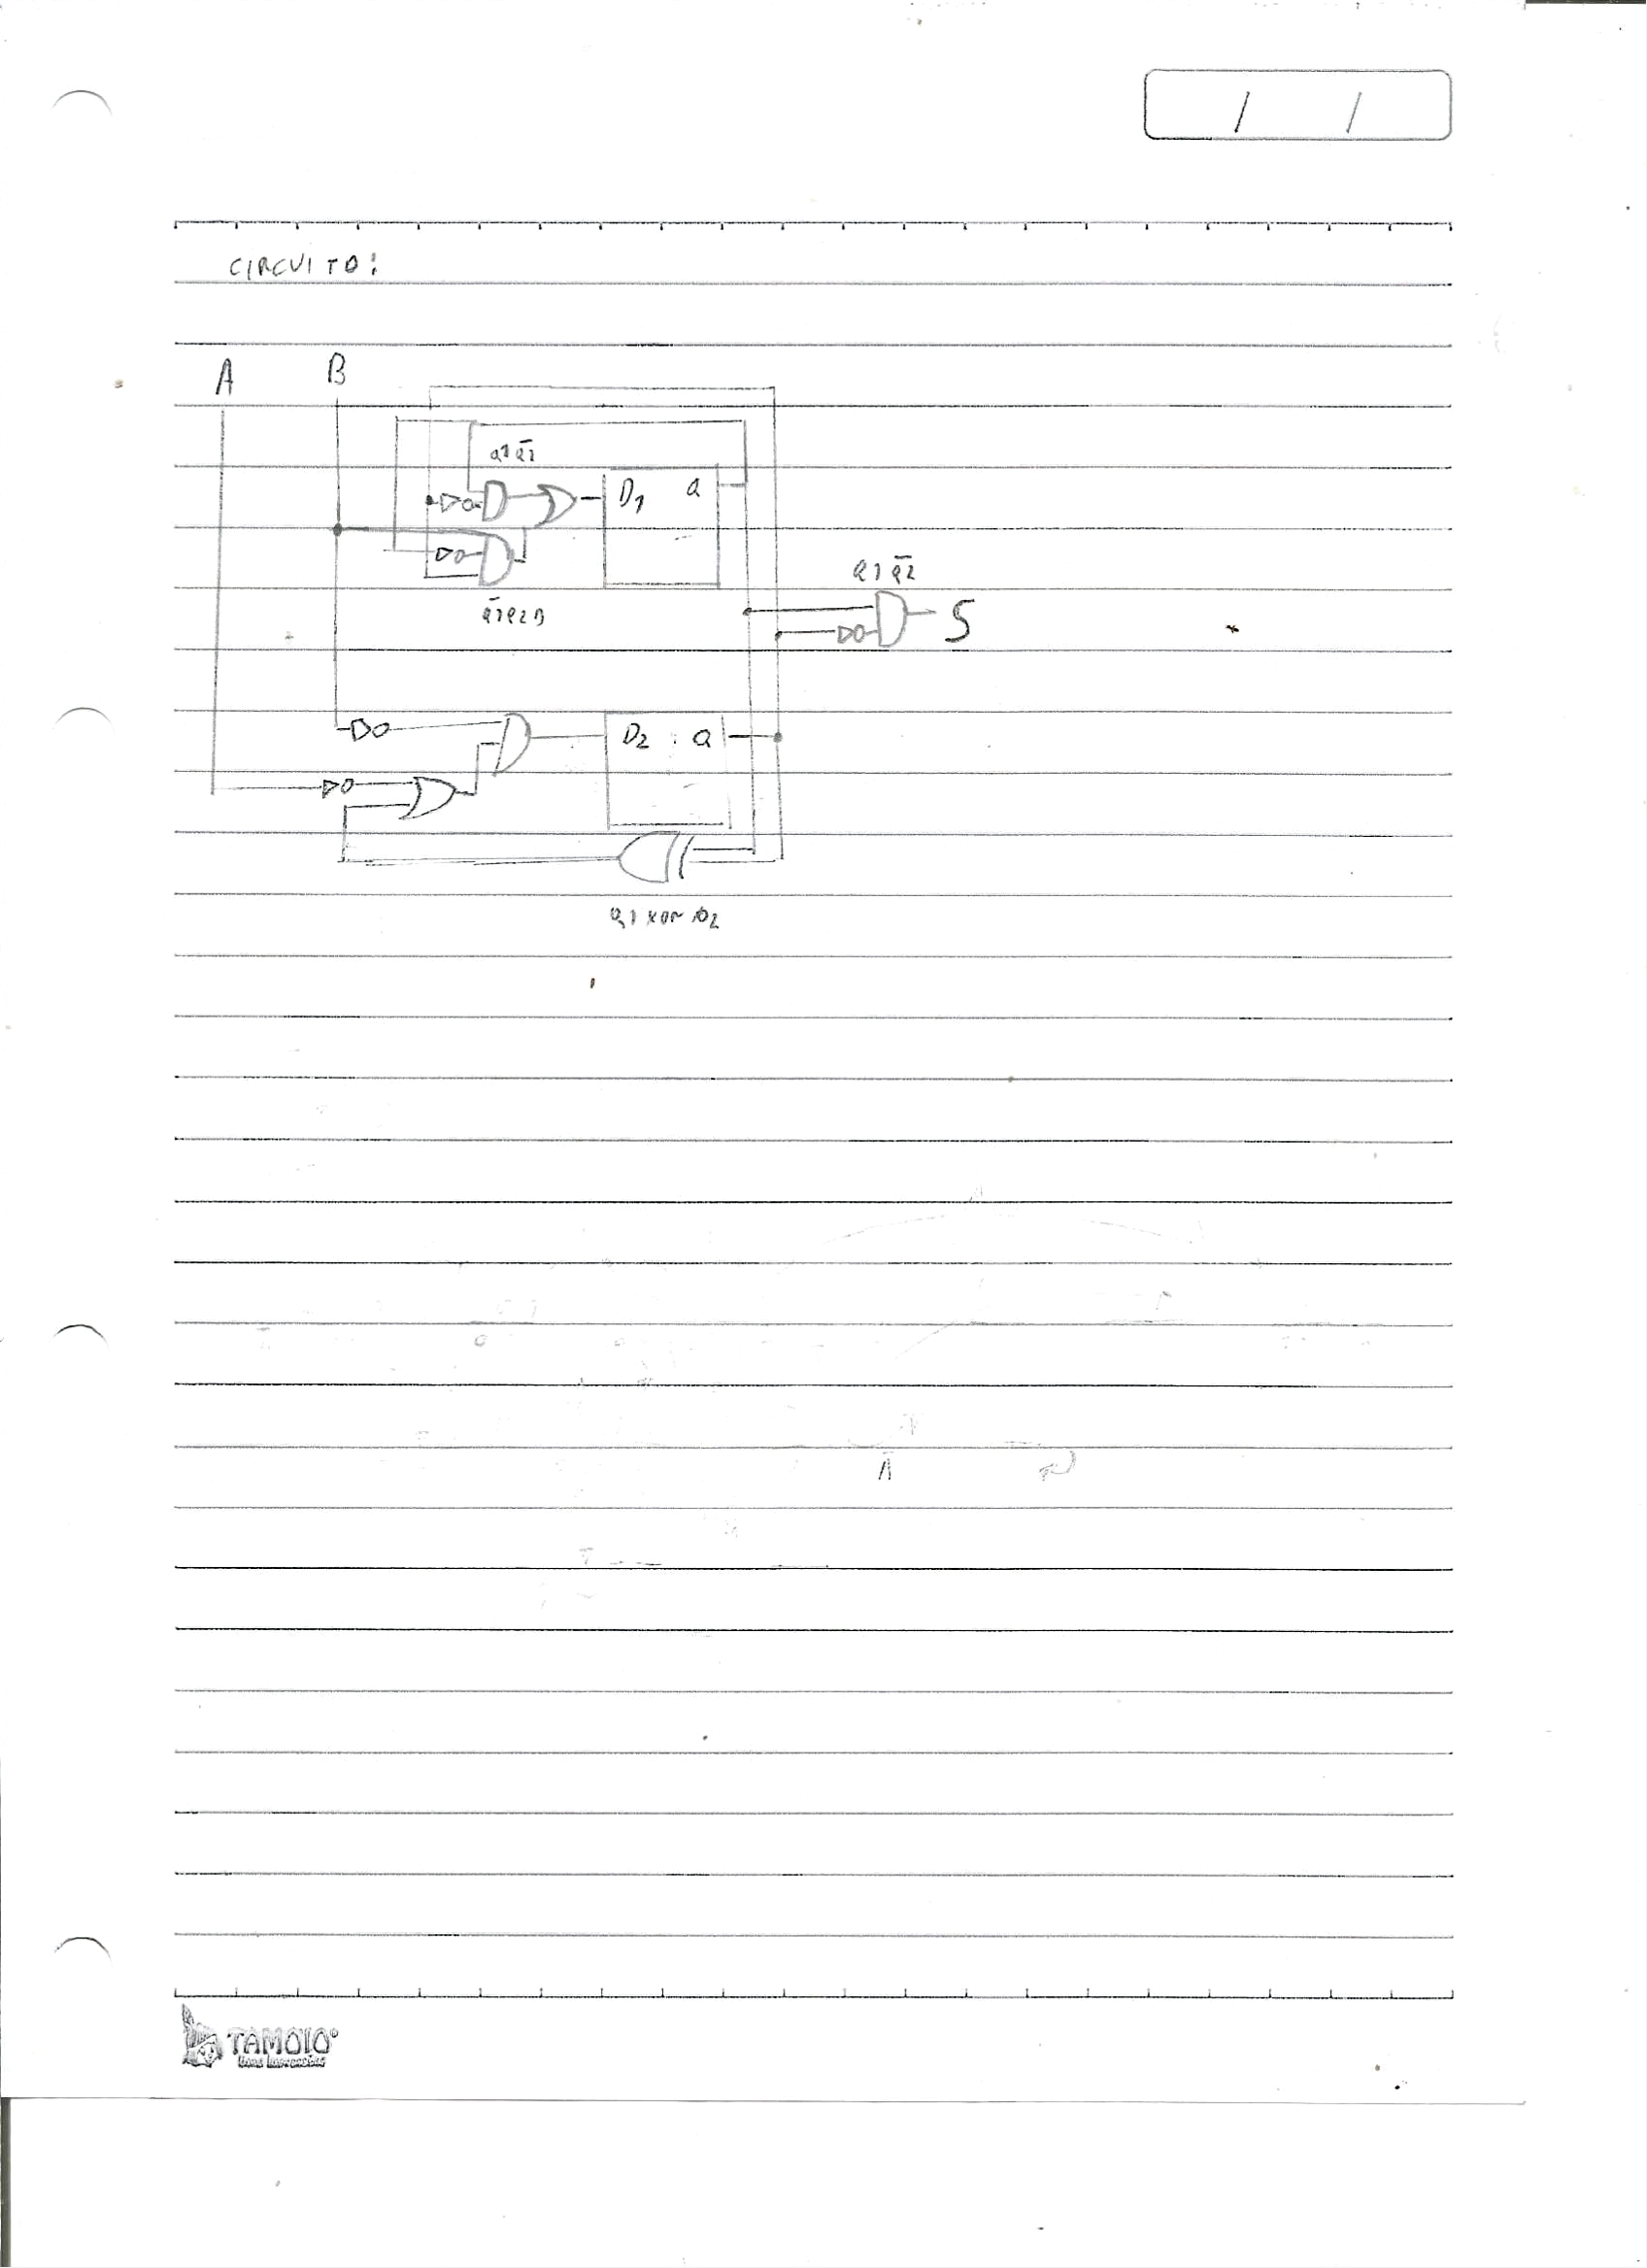 / /
CIRCUITO:
A B
Q1
D1 Q
Q1 Q̅2
Q̅1Q2B
S
D2 Q
Q1 xor Q2
TAMOIO®